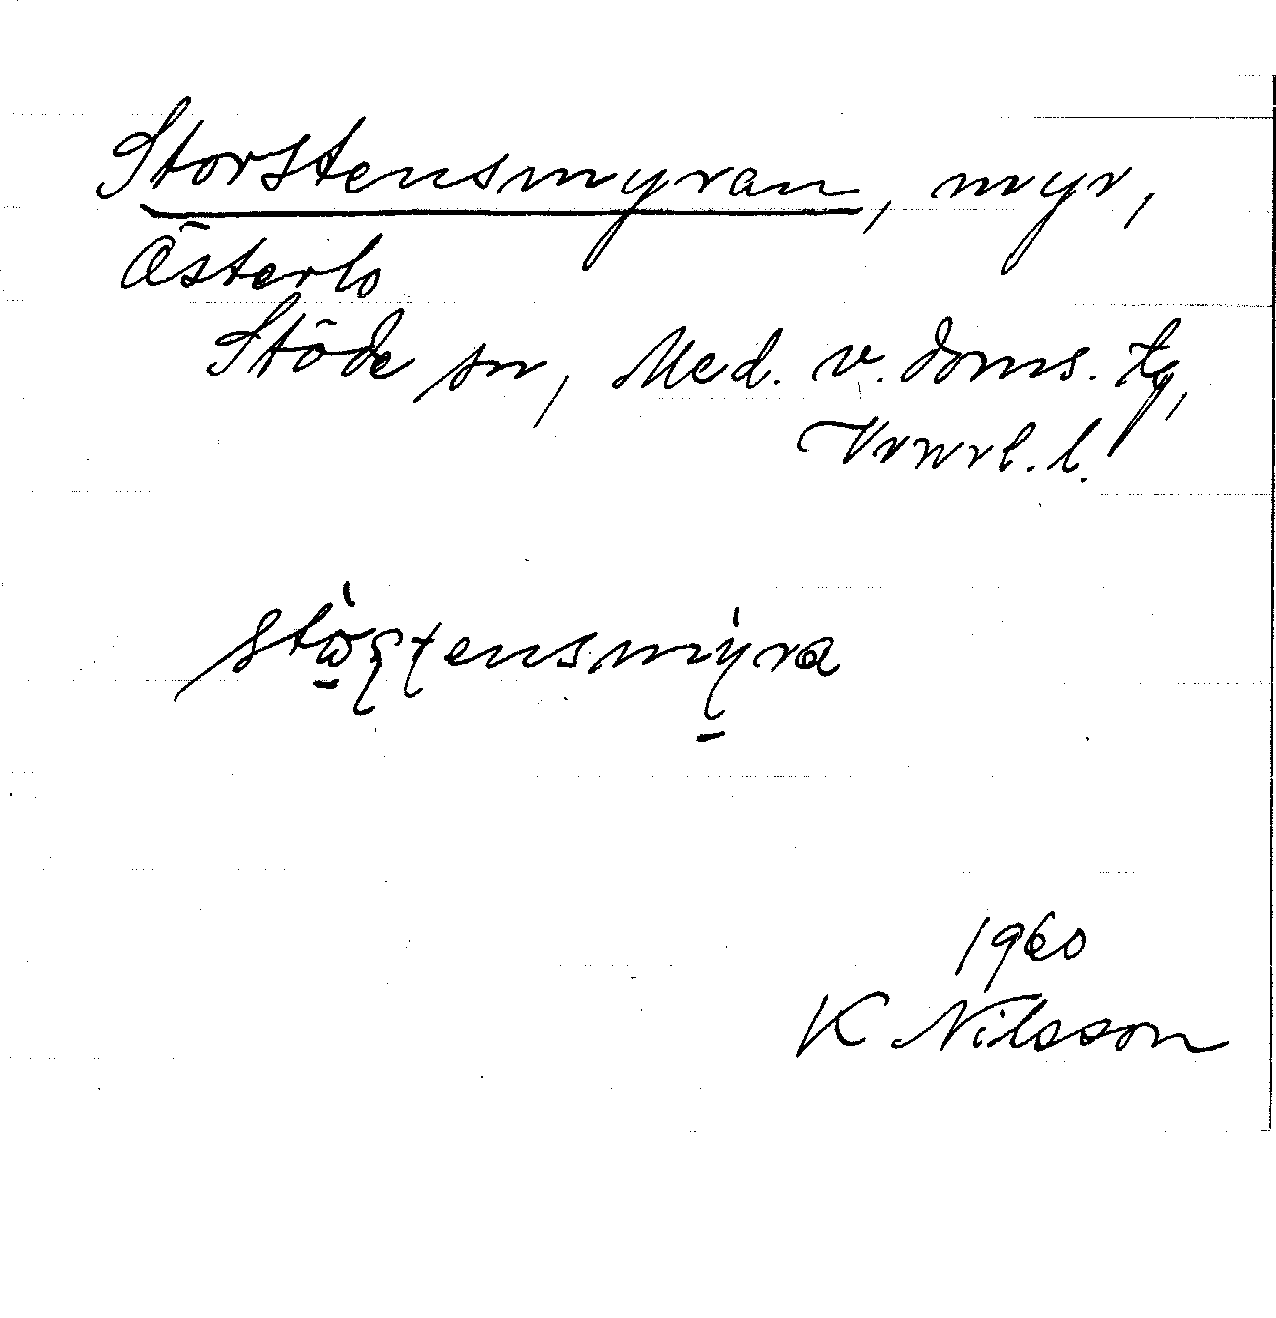 Storstensmyran, myr,
Österlo
Stöde sn, Med. v. doms. tg,
Vrnrl. l.
1960
K Nilsson